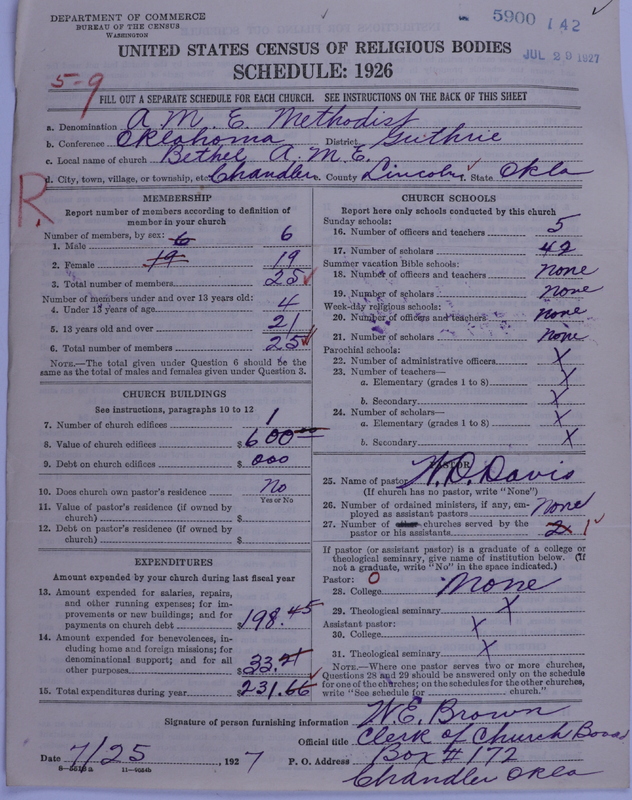 DEPARTMENT OF COMMERCE
BUREAU OF THE CENSUS
WASHINGTON
5900 142
JUL 29 1927
UNITED STATES CENSUS OF RELIGIOUS BODIES
SCHEDULE: 1926
5-9
FILL OUT A SEPARATE SCHEDULE FOR EACH CHURCH. SEE INSTRUCTIONS ON THE BACK OF THIS SHEET
a. Denomination A. M. E. Methodist
b. Conference Oklahoma District Guthrie
c. Local name of church Bethel A. M. E.
d. City, town, village, or township, etc. Chandler e. County Lincoln f. State Okla
R.
MEMBERSHIP
Report number of members according to definition of member in your church
Number of members, by sex:
1. Male 6 6
2. Female 19 19
3. Total number of members 25
Number of members under and over 13 years old:
4. Under 13 years of age 4
5. 13 years old and over 21
6. Total number of members 25
NOTE.—The total given under Question 6 should be the same as the total of males and females given under Question 3.
CHURCH BUILDINGS
See instructions, paragraphs 10 to 12
7. Number of church edifices 1
8. Value of church edifices $ 600 00
9. Debt on church edifices $ 000
10. Does church own pastor's residence No
Yes or No
11. Value of pastor's residence (if owned by church) $
12. Debt on pastor's residence (if owned by church) $
EXPENDITURES
Amount expended by your church during last fiscal year
13. Amount expended for salaries, repairs, and other running expenses; for improvements or new buildings; and for payments on church debt $198.45
14. Amount expended for benevolences, including home and foreign missions; for denominational support; and for all other purposes $33.21
15. Total expenditures during year $231.66
CHURCH SCHOOLS
Report here only schools conducted by this church
Sunday schools:
16. Number of officers and teachers 5
17. Number of scholars 42
Summer vacation Bible schools:
18. Number of officers and teachers none
19. Number of scholars none
Week-day religious schools:
20. Number of officers and teachers none
21. Number of scholars none
Parochial schools:
22. Number of administrative officers X
23. Number of teachers—
a. Elementary (grades 1 to 8) X
b. Secondary X
24. Number of scholars—
a. Elementary (grades 1 to 8) X
b. Secondary X
PASTOR
25. Name of pastor W. D. Davis
(If church has no pastor, write "None")
26. Number of ordained ministers, if any, employed as assistant pastors none
27. Number of other churches served by the pastor or his assistants 2 1
If pastor (or assistant pastor) is a graduate of a college or theological seminary, give name of institution below. (If not a graduate, write "No" in the space indicated.)
Pastor: 0
28. College none
29. Theological seminary X
Assistant pastor:
30. College X
31. Theological seminary X
NOTE.—Where one pastor serves two or more churches, Questions 28 and 29 should be answered only on the schedule for one of the churches; on the schedules for the other churches, write "See schedule for church."
Signature of person furnishing information W. E. Brown
Official title Clerk of Church Board
Date 7/25, 1927 P. O. Address Box #172
Chandler Okla
11-9054b